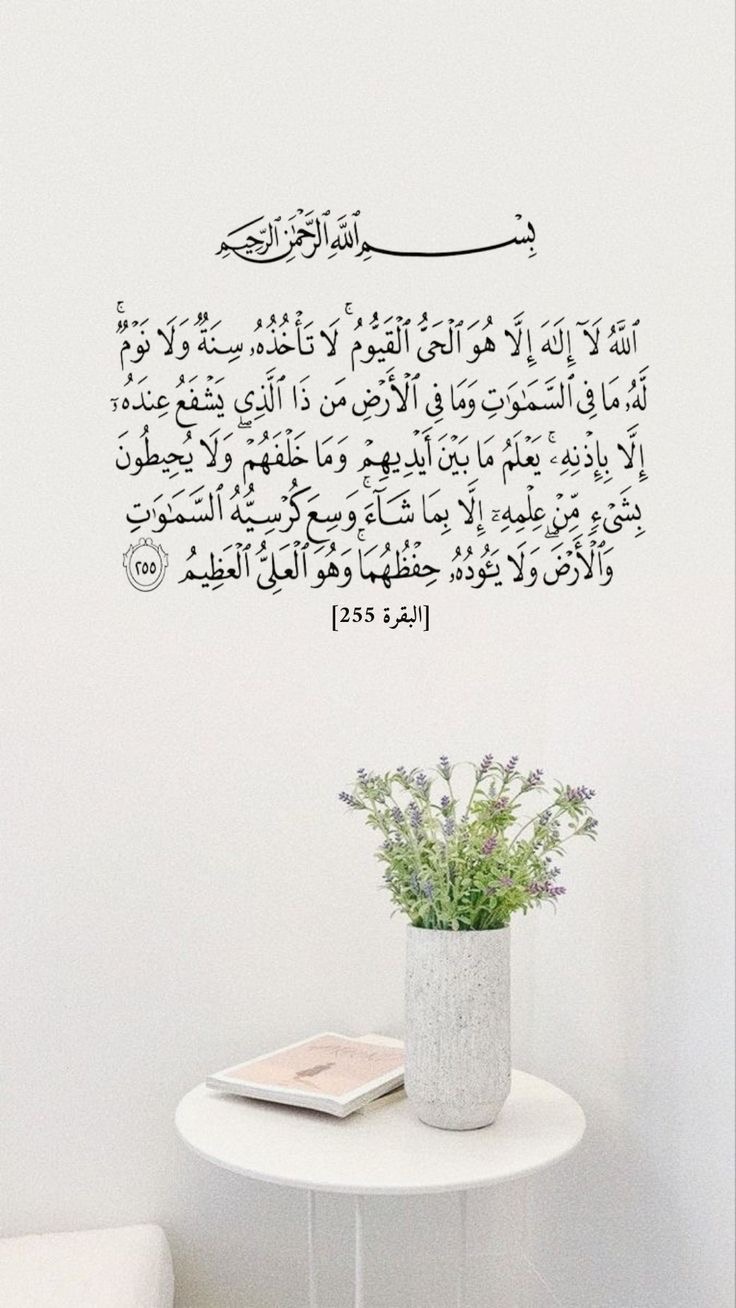 بِسْمِ ٱللَّهِ ٱلرَّحْمَٰنِ ٱلرَّحِيمِ
ٱللَّهُ لَآ إِلَٰهَ إِلَّا هُوَ ٱلْحَىُّ ٱلْقَيُّومُ ۚ لَا تَأْخُذُهُۥ سِنَةٌ وَلَا نَوْمٌ ۚ
لَّهُۥ مَا فِى ٱلسَّمَٰوَٰتِ وَمَا فِى ٱلْأَرْضِ مَن ذَا ٱلَّذِى يَشْفَعُ عِندَهُۥٓ
إِلَّا بِإِذْنِهِۦ ۚ يَعْلَمُ مَا بَيْنَ أَيْدِيهِمْ وَمَا خَلْفَهُمْ ۖ وَلَا يُحِيطُونَ
بِشَىْءٍ مِّنْ عِلْمِهِۦٓ إِلَّا بِمَا شَآءَ ۚ وَسِعَ كُرْسِيُّهُ ٱلسَّمَٰوَٰتِ
وَٱلْأَرْضَ ۖ وَلَا يَـُٔودُهُۥ حِفْظُهُمَا ۚ وَهُوَ ٱلْعَلِىُّ ٱلْعَظِيمُ ٢٥٥
[البقرة 255]